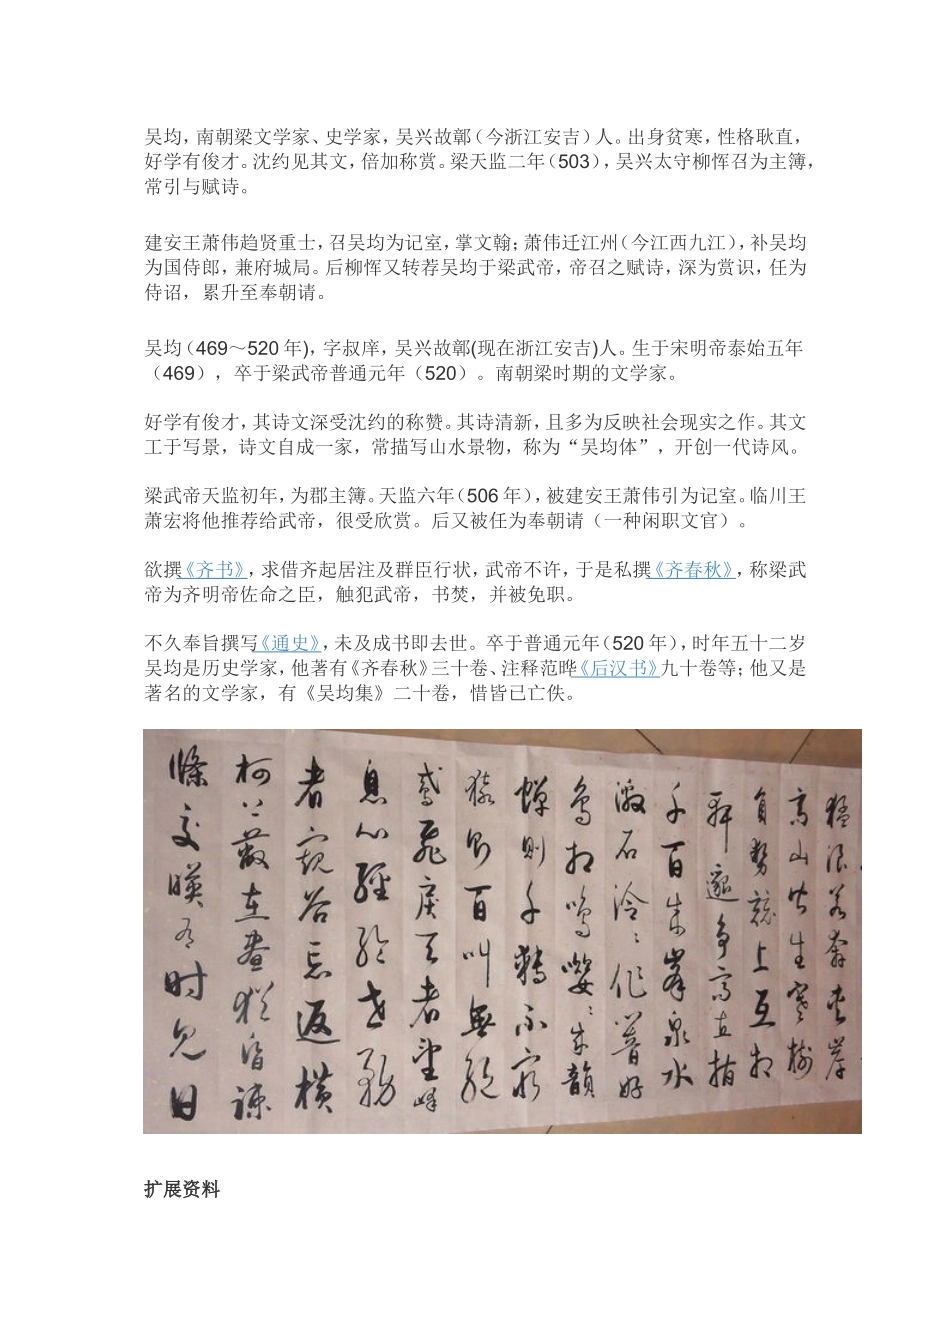 吴均，南朝梁文学家、史学家，吴兴故鄣（今浙江安吉）人。出身贫寒，性格耿直，
好学有俊才。沈约见其文，倍加称赏。梁天监二年（503），吴兴太守柳恽召为主簿，
常引与赋诗。
建安王萧伟趋贤重士，召吴均为记室，掌文翰；萧伟迁江州（今江西九江），补吴均
为国侍郎，兼府城局。后柳恽又转荐吴均于梁武帝，帝召之赋诗，深为赏识，任为
侍诏，累升至奉朝请。
吴均（469～520 年)，字叔庠，吴兴故鄣(现在浙江安吉)人。生于宋明帝泰始五年
（469），卒于梁武帝普通元年（520）。南朝梁时期的文学家。
好学有俊才，其诗文深受沈约的称赞。其诗清新，且多为反映社会现实之作。其文
工于写景，诗文自成一家，常描写山水景物，称为“吴均体”，开创一代诗风。
梁武帝天监初年，为郡主簿。天监六年（506 年），被建安王萧伟引为记室。临川王
萧宏将他推荐给武帝，很受欣赏。后又被任为奉朝请（一种闲职文官）。
欲撰《齐书》，求借齐起居注及群臣行状，武帝不许，于是私撰《齐春秋》，称梁武
帝为齐明帝佐命之臣，触犯武帝，书焚，并被免职。
不久奉旨撰写《通史》，未及成书即去世。卒于普通元年（520 年），时年五十二岁
吴均是历史学家，他著有《齐春秋》三十卷、注释范晔《后汉书》九十卷等；他又是
著名的文学家，有《吴均集》二十卷，惜皆已亡佚。
猛浪若奔夹岸
高山皆生寒树
负势竞上互相
轩邈争高直指
千百成峯泉水
激石泠泠作响好
鸟相鸣嘤嘤成韻
蝉则千转不穷
猿则百叫無绝
鸢飛戾天者望峰
息心經纶世务
者窥谷忘返横
柯上蔽在晝犹昏疎
條交暎有时见日
扩展资料